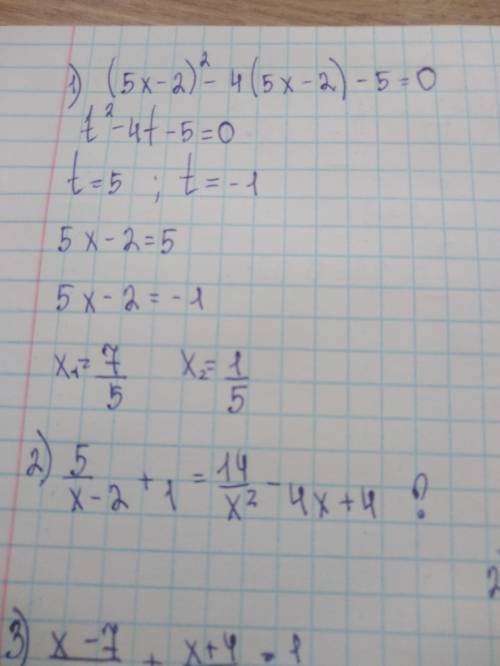 1) (5x-2)² - 4(5x-2) - 5 = 0
t² - 4t - 5 = 0
t = 5 ; t = -1
5x - 2 = 5
5x - 2 = -1
x₁ = 7/5 x₂ = 1/5
2) 5/(x-2) + 1 = 14/x² - 4x + 4 ?
2
3) x-7 + x+4 = 1